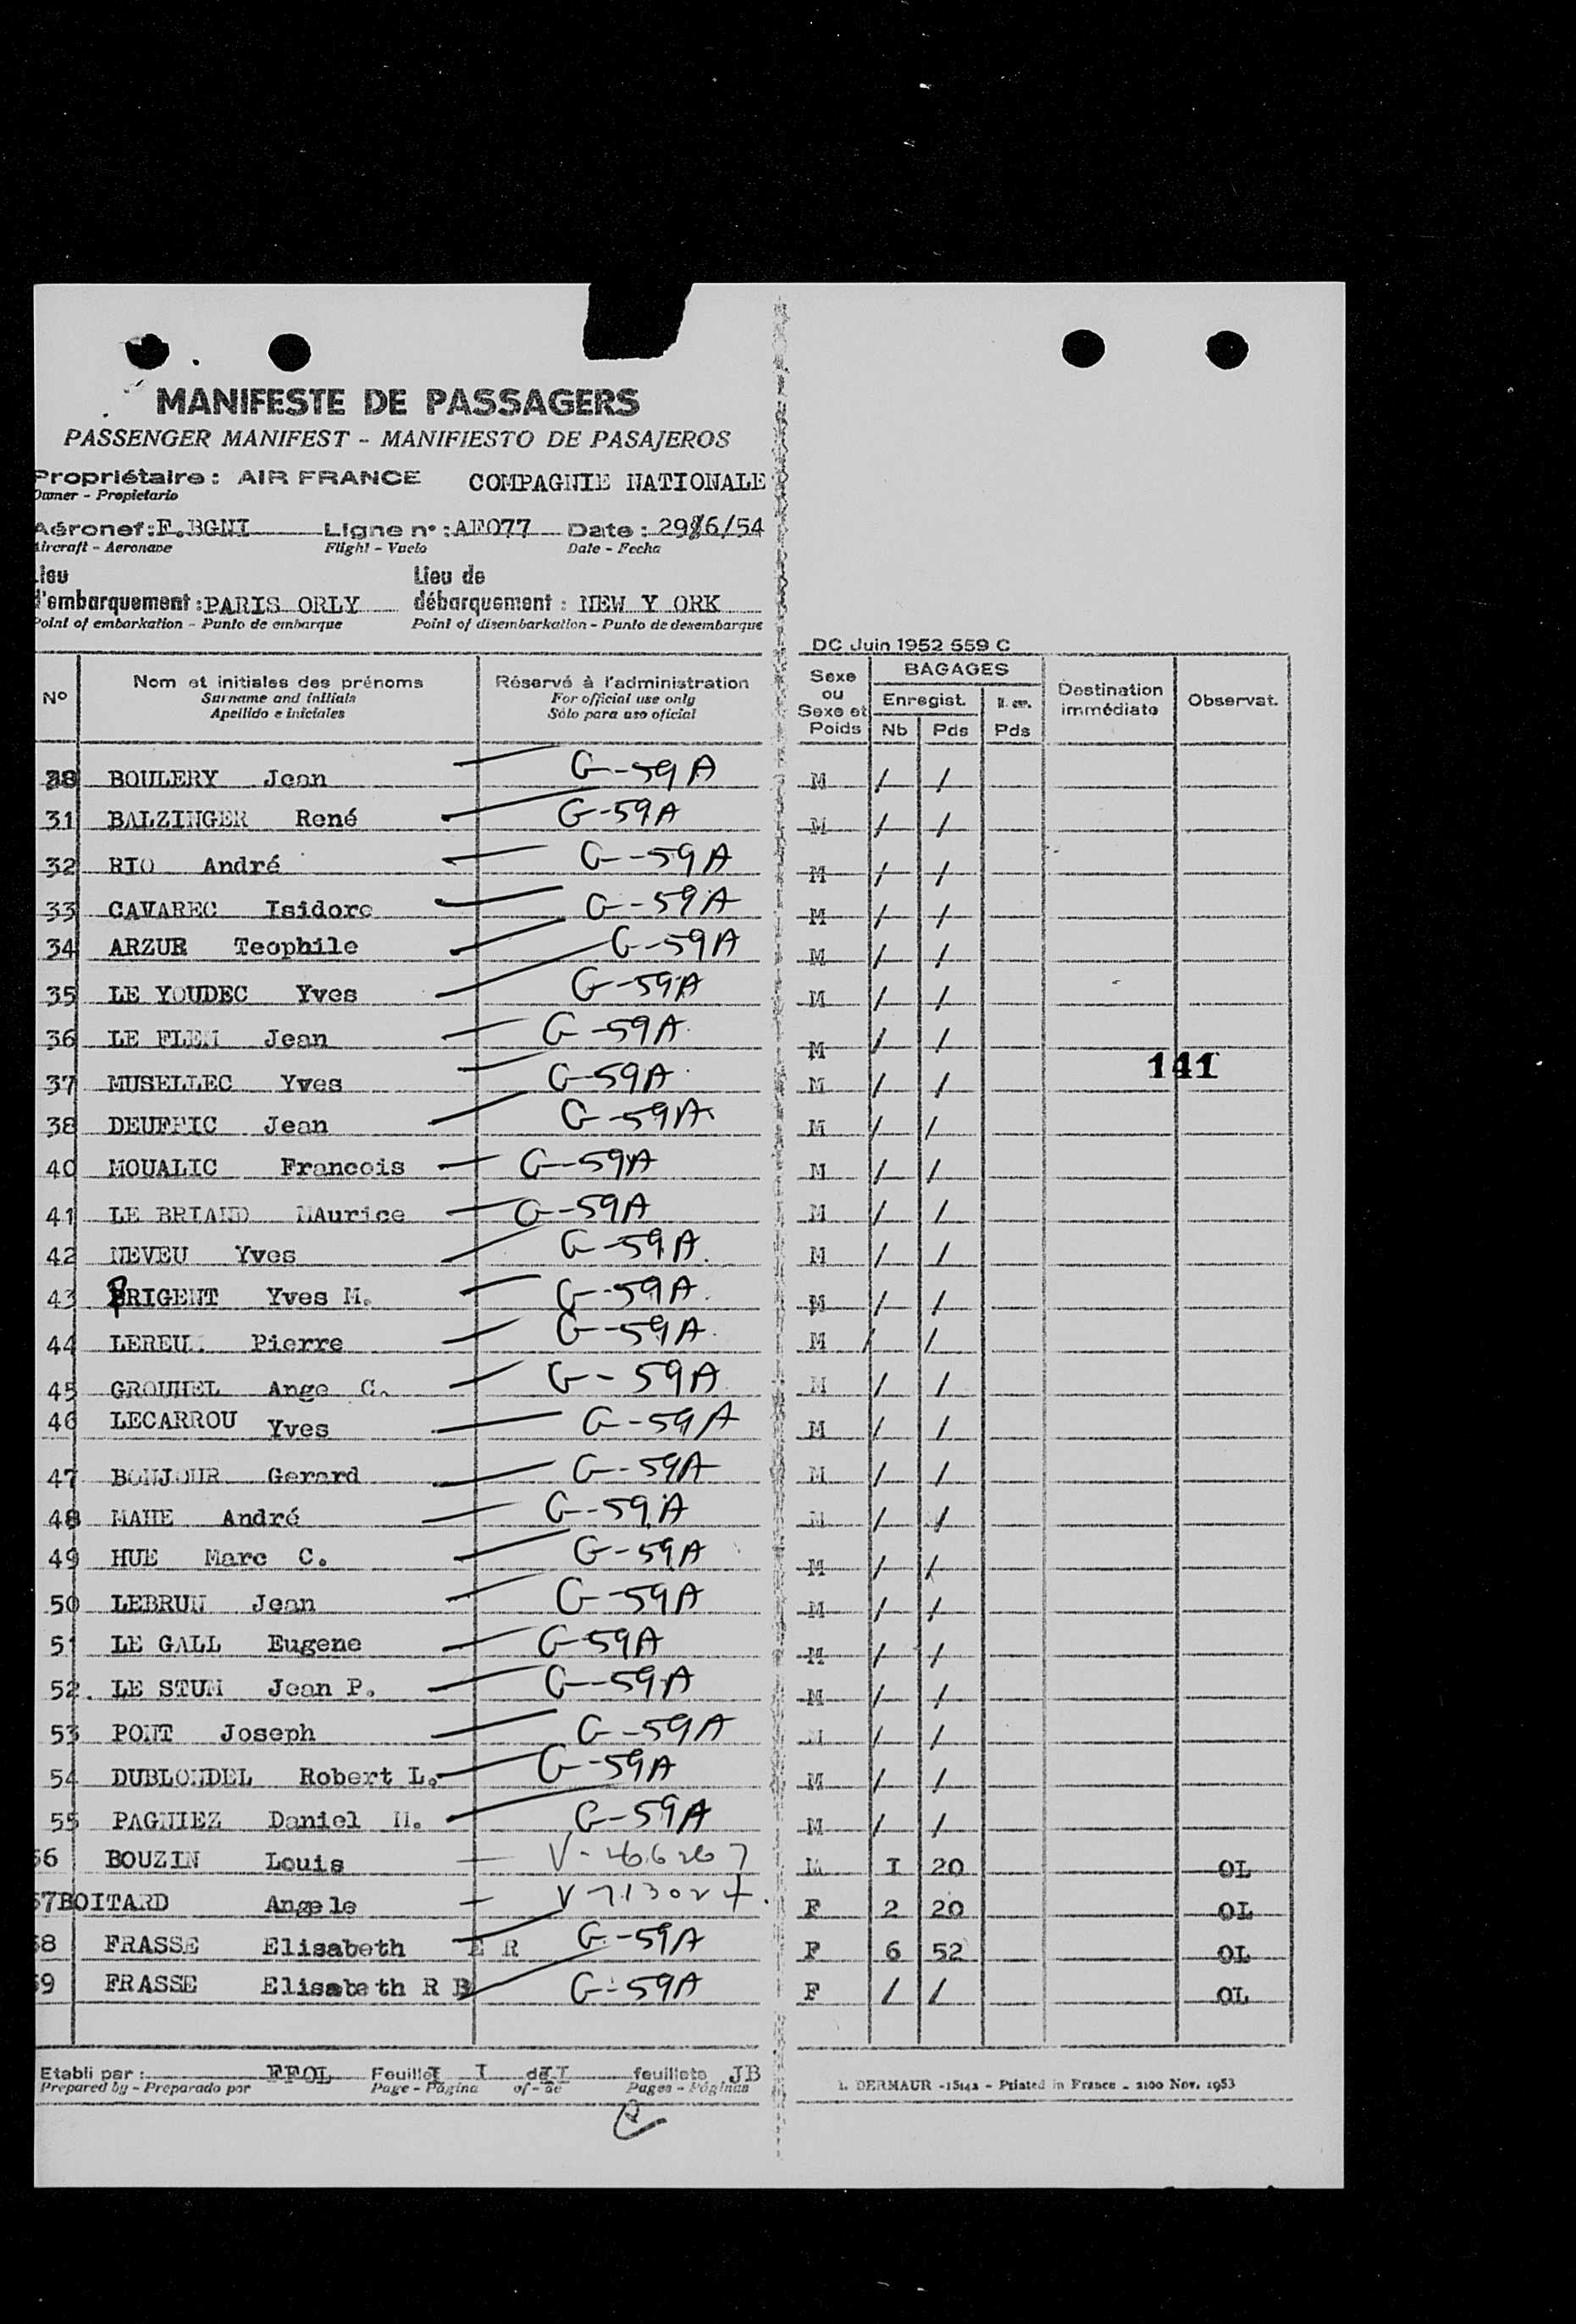 MANIFESTE DE PASSAGERS
PASSENGER MANIFEST - MANIFIESTO DE PASAJEROS
Propriétaire : AIR FRANCE COMPAGNIE NATIONALE
Owner - Propietario
Aéronef : F.BGNI Ligne n° : AF077 Date : 29/6/54
Aircraft - Aeronave Flight - Vuelo Date - Fecha
Lieu d'embarquement : PARIS ORLY Lieu de débarquement : NEW Y ORK
Point of embarkation - Punto de embarque Point of disembarkation - Punto de desembarque
DC Juin 1952 559 C
N° Nom et initiales des prénoms Réservé à l'administration Sexe ou Sexe et Poids BAGAGES Enregist. Nb Pds Pds Destination immédiate Observat.
Surname and initials For official use only
Apellido e iniciales Sólo para uso oficial
BOULERY Jean G-59A M / /
31 BALZINGER René G-59A M / /
32 RIO André G-59A M / /
33 CAVAREC Isidore G-59A M / /
34 ARZUR Teophile G-59A M / /
35 LE YOUDEC Yves G-59A M / /
36 LE FLEM Jean G-59A M / /
141
37 MUSELLEC Yves G-59A M / /
38 DEUFFIC Jean G-59A M / /
40 MOUALIC Francois G-59A M / /
41 LE BRIAND MAurice G-59A M / /
42 NEVEU Yves G-59A M / /
43 PRIGENT Yves M. G-59A M / /
44 Pierre G-59A M / /
45 GROUHEL Ange C. G-59A M / /
46 LECARROU Yves G-59A M / /
47 BONJOUR Gerard G-59A M / /
48 MAHE André G-59A M / /
49 HUE Marc C. G-59A M / /
50 LEBRUN Jean G-59A M / /
51 LE GALL Eugene G-59A M / /
52. LE STUM Jean P. G-59A M / /
53 PONT Joseph G-59A M / /
54 DUBLONDEL Robert L. G-59A M / /
55 PAGNIEZ Daniel G-59A M / /
56 BOUZIN Louis M I 20 OL
57 BOITARD Angele F 2 20 OL
58 FRASSE Elisabeth E R G-59A F 6 52 OL
59 FRASSE Elisabeth R B G-59A F / / OL
Etabli par : FFOL Feuillet I I de II feuillets JB
Prepared by - Preparado por Page - Página of - de Pages - Páginas
L. DERMAUR - 15142 - Printed in France - 2100 Nov. 1953